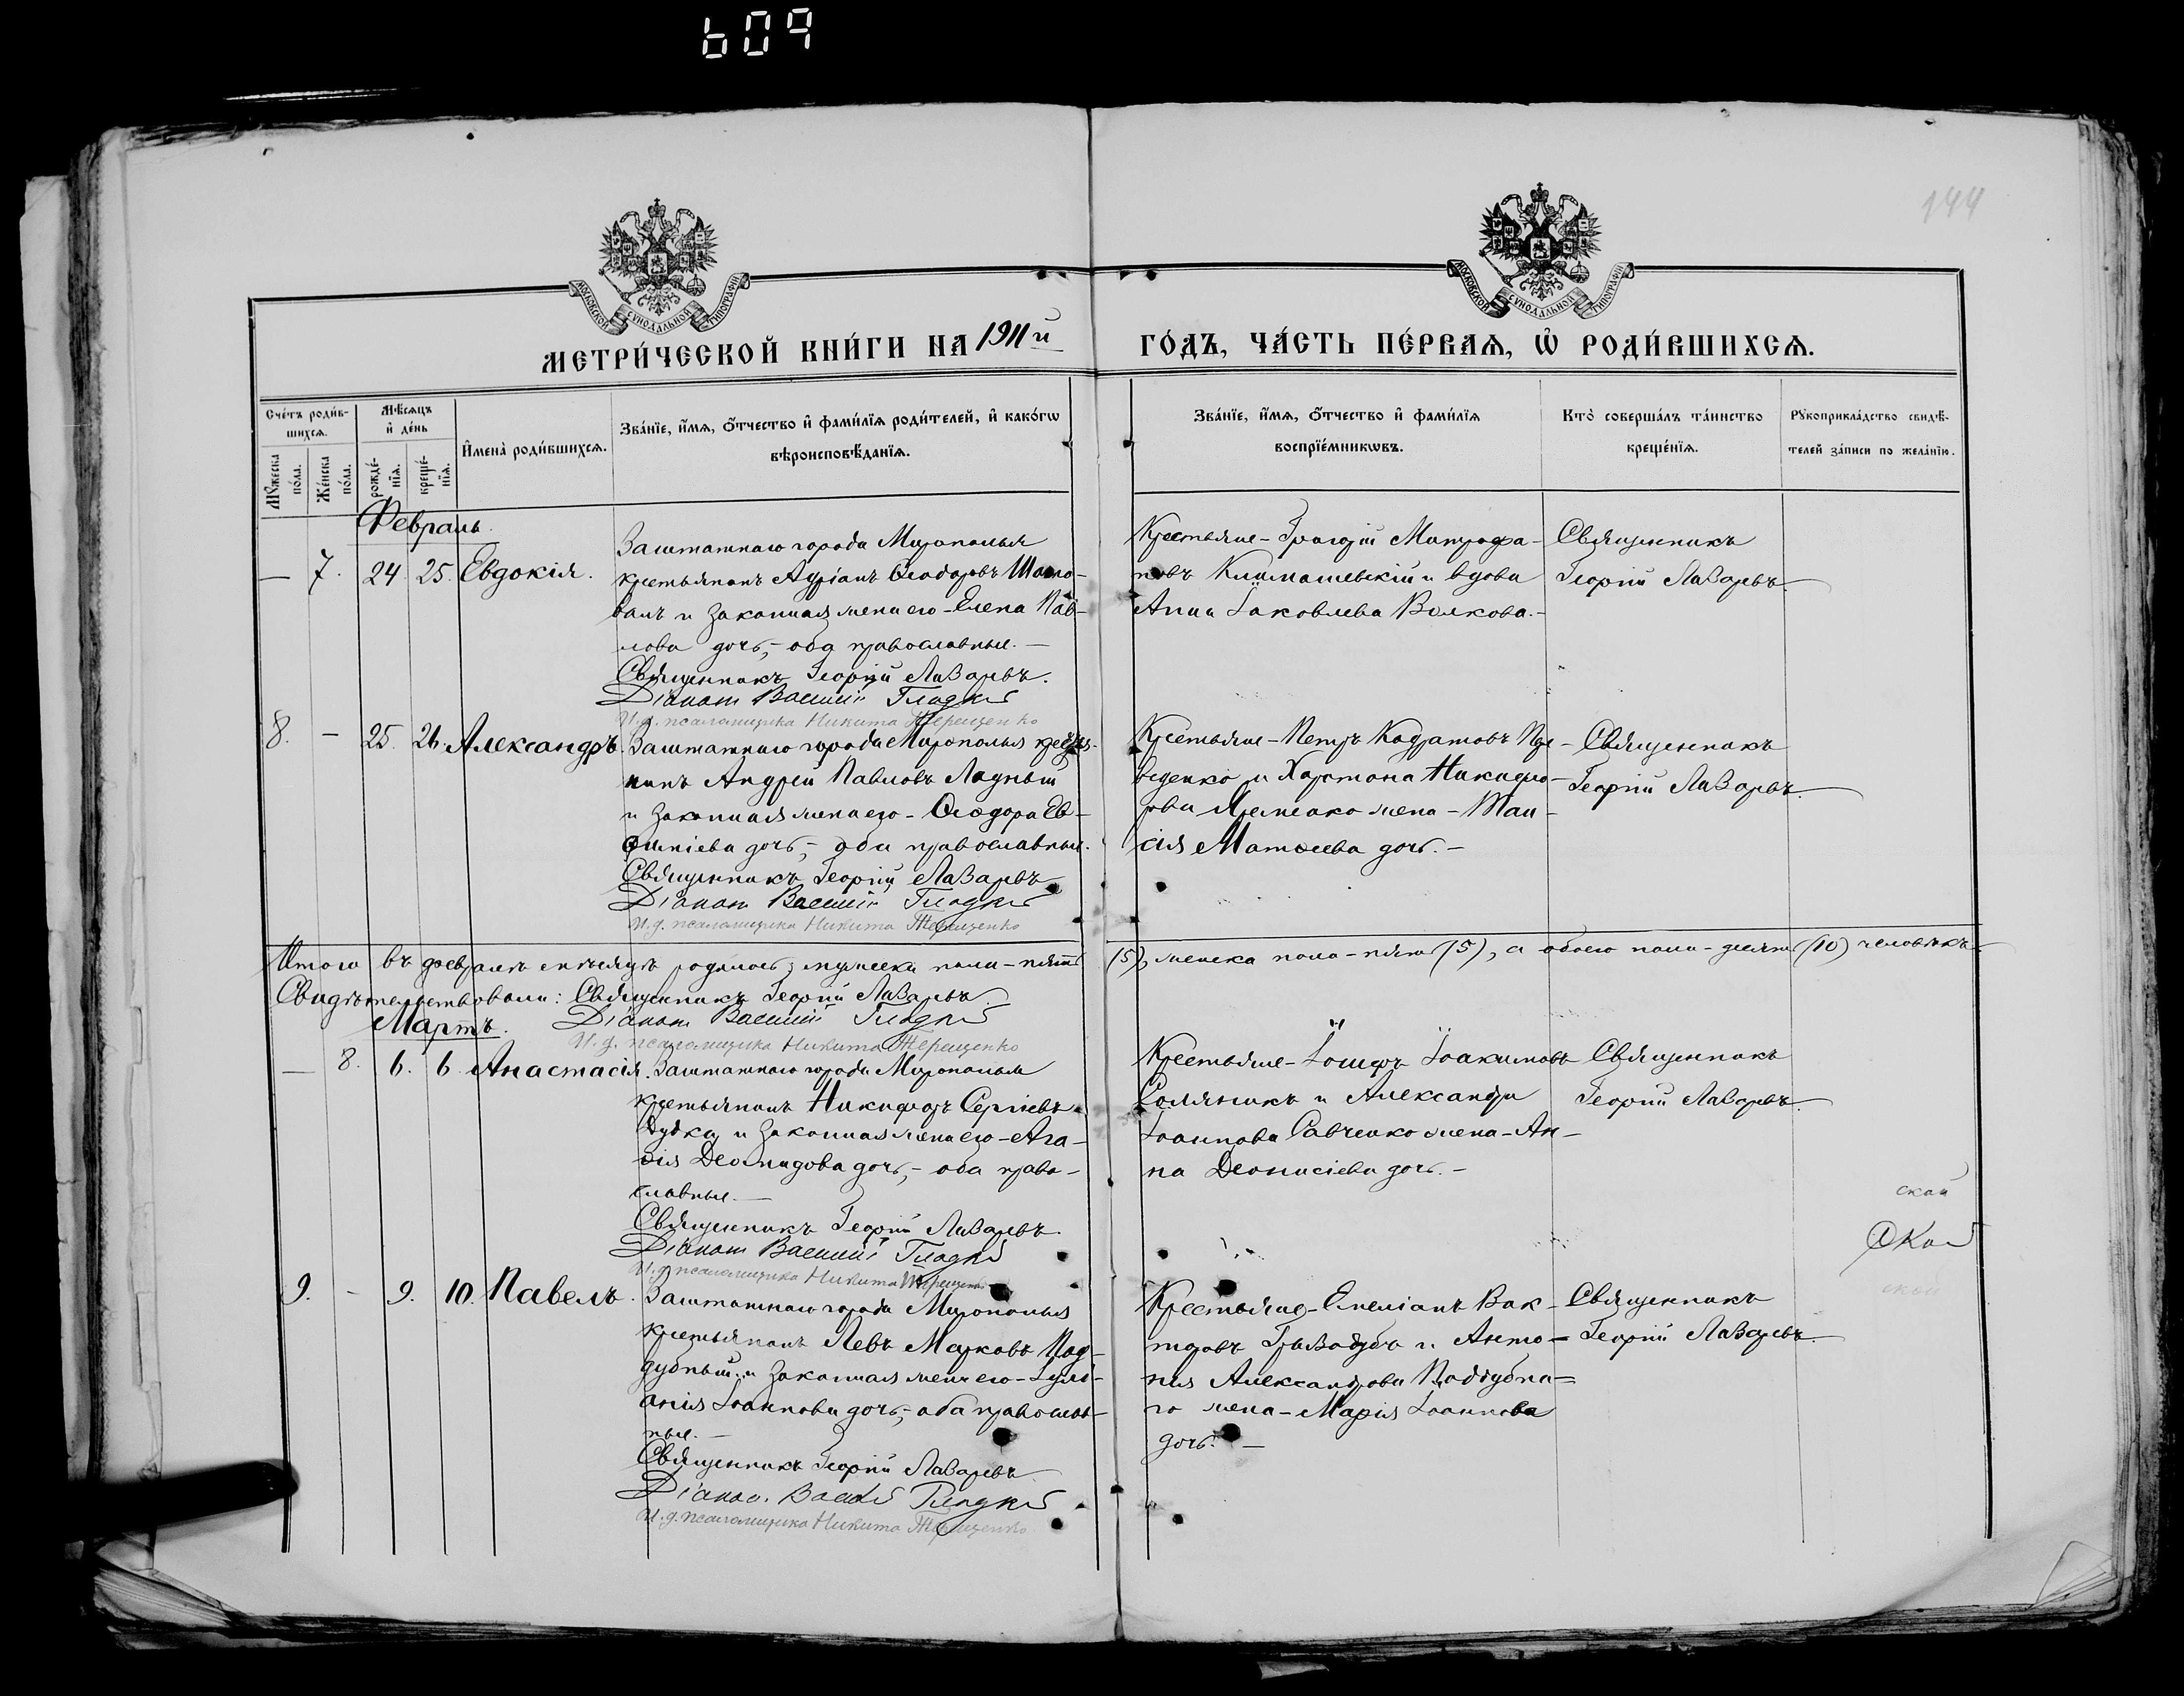 609
144
МОСКОВСКОЙ СѴНОДАЛЬНОЙ ТИПОГРАФІИ
МОСКОВСКОЙ СѴНОДАЛЬНОЙ ТИПОГРАФІИ
МЕТРИ́ЧЕСКОЙ КНИ́ГИ НА 1911й ГО́ДЪ, ЧА́СТЬ ПЕ́РВАѦ, Ѡ҆ РОДИ́ВШИХСѦ.
Сче́тъ роди́в-
шихсѧ.
Мѣ́сѧцъ
и҆ де́нь
Мꙋ́жеска
по́ла.
Же́нска
по́ла.
рожде́-
нїѧ.
креще́-
нїѧ.
И҆мена̀ роди́вшихсѧ.
Зва́нїе, и҆́мѧ, ѻ҆́тчество и҆ фами́лїѧ роди́телей, и҆ како́гѡ
вѣроисповѣ́данїѧ.
Зва́нїе, и҆́мѧ, ѻ҆́тчество и҆ фами́лїѧ
воспрїе́мникѡвъ.
Кто̀ соверша́лъ та́инство
креще́нїѧ.
Рꙋкоприкла́дство свидѣ́-
телей за́писи по жела́нїю.
Февраль.
— 7. 24. 25. Евдокія.
Заштатнаго города Мирополья
крестьянинъ Адріанъ Ѳеодоровъ Шапо-
валъ и законная жена его - Елена Пав-
лова дочь, - оба православные. —
Священникъ Георгій Лазаревъ.
Діаконъ Василій Гладкій
И.д. псаломщика Никита Терещенко
Крестьяне - Григорій Митрофа-
новъ Климашевскій и вдова
Анна Іаковлева Волкова. -
Священникъ
Георгій Лазаревъ.
8. — 25. 26. Александръ.
Заштатнаго города Мирополья крестья-
нинъ Андрей Павловъ Ладный
и законная жена его - Ѳеодора Ев-
фиміева дочь, - оба православные.
Священникъ Георгій Лазаревъ
Діаконъ Василій Гладкій
И.д. псаломщика Никита Терещенко
Крестьяне - Петръ Кодратовъ
и Харитона Никифо-
рова жена - Таи-
сія Матѳеева дочь. -
Священникъ
Георгій Лазаревъ.
Итого въ февралѣ мѣсяцѣ родилось: мужеска пола - пять (5), женска пола - пять (5), а обоего пола - десять (10) человѣкъ.
Свидѣтельствовали: Священникъ Георгій Лазаревъ.
Діаконъ Василій Гладкій
И.д. псаломщика Никита Терещенко
Мартъ.
— 8. 6. 6 Анастасія.
Заштатнаго города Мирополья
крестьянинъ Никифоръ Сергіевъ
Дудка и законная жена его - Ага-
ѳія Деомидова дочь, - оба право-
славные. —
Священникъ Георгій Лазаревъ.
Діаконъ Василій Гладкій
И.д. псаломщика Никита Терещенко
Крестьяне - Іосифъ Іоакимовъ
Соляникъ и Александра
Іоаннова Савченко жена - Ан-
на Деонисіева дочь. -
Священникъ
Георгій Лазаревъ.
9. - 9. 10. Павелъ.
Заштатнаго города Мирополья
крестьянинъ Левъ Марковъ Под-
дубный и законная жена его - Іулі-
анія Іоаннова дочь, - оба православ-
ные. —
Священникъ Георгій Лазаревъ
Діаконъ Василій Гладкій
И.д. псаломщика Никита Терещенко
Крестьяне - Емеліанъ Вик-
торовъ и Анто-
нія Александрова Поддубна-
го жена - Марія Іоаннова
дочь. —
Священникъ
Георгій Лазаревъ.
ской